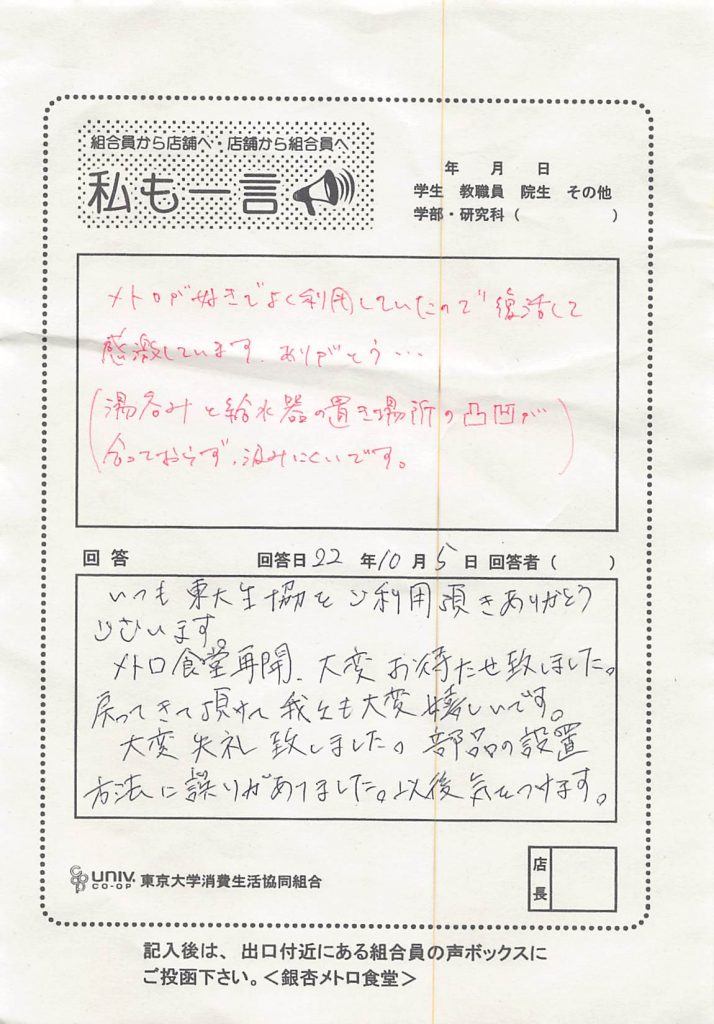 組合員から店舗へ・店舗から組合員へ
私も一言
年 月 日
学生 教職員 院生 その他
学部・研究科( )
メトロが好きでよく利用していたので復活して
感激しています。ありがとう…
(湯呑みと給水器の置き場所の凸凹が
合っておらず、汲みにくいです。)
回答 回答日 22 年 10 月 5 日 回答者( )
いつも東大生協をご利用頂きありがとう
ございます。
メトロ食堂再開、大変お待たせ致しました。
戻ってきて頂けて我々も大変嬉しいです。
大変失礼致しました。部品の設置
方法に誤りがありました。以後気をつけます。
CO-OP UNIV. CO-OP 東京大学消費生活協同組合
店長
記入後は、出口付近にある組合員の声ボックスに
ご投函下さい。<銀杏メトロ食堂>